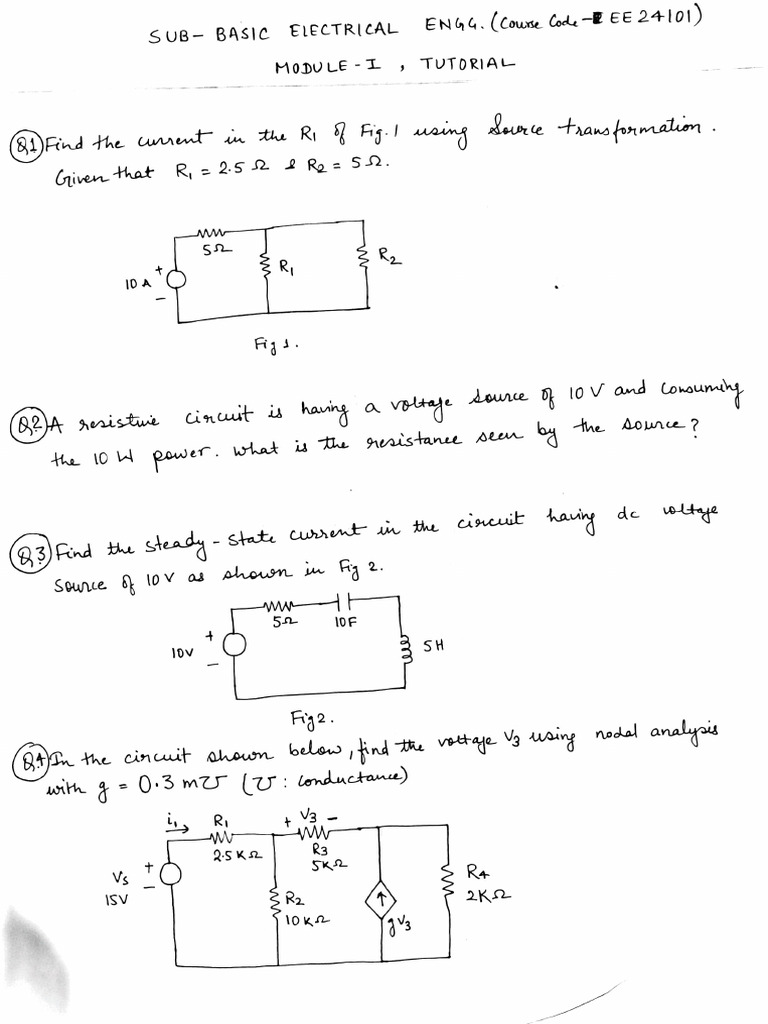 SUB- BASIC ElECTRICAL ENGG. (Course Code- EE24101)
MODULE-I , TUTORIAL
Q1) Find the current in the R1 of Fig.1 using Source transformation.
Given that R1 = 2.5 Ω & R2 = 5 Ω.
5Ω
R1
R2
10 A
+
-
Fig 1.
Q2) A resistive circuit is having a voltage source of 10 V and consuming
the 10 W power. What is the resistance seen by the source?
Q3) Find the steady-state current in the circuit having dc voltage
source of 10V as shown in Fig 2.
5Ω
10F
10V
+
-
5H
Fig 2.
Q4) In the circuit shown below, find the voltage V3 using nodal analysis
with g = 0.3 m℧ (℧: conductance)
i1
R1
+ V3 -
2.5KΩ
R3
5KΩ
Vs
15V
+
-
R2
10KΩ
gV3
R4
2KΩ